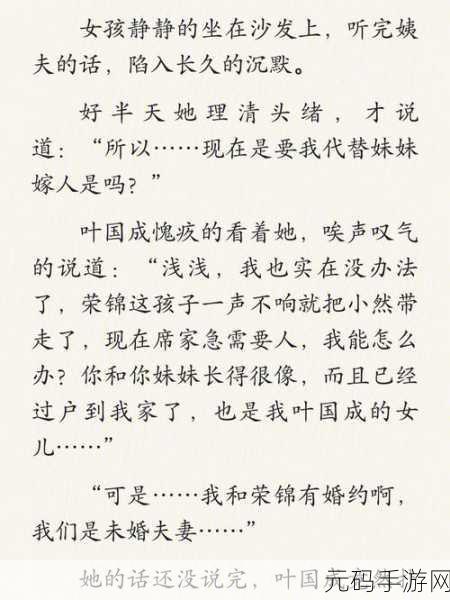 女孩静静的坐在沙发上，听完姨
夫的话，陷入长久的沉默。
好半天她理清头绪，才说
道：“所以……现在是要我代替妹妹
嫁人是吗？”
叶国成愧疚的看着她，唉声叹气
的说道：“浅浅，我也实在没办法
了，荣锦这孩子一声不响就把小然带
走了，现在席家急需要人，我能怎么
办？你和你妹妹长得很像，而且已经
过户到我家了，也是我叶国成的女
儿……”
“可是……我和荣锦有婚约啊，
我们是未婚夫妻……”
她的话还没说完，叶国成
元码手游网